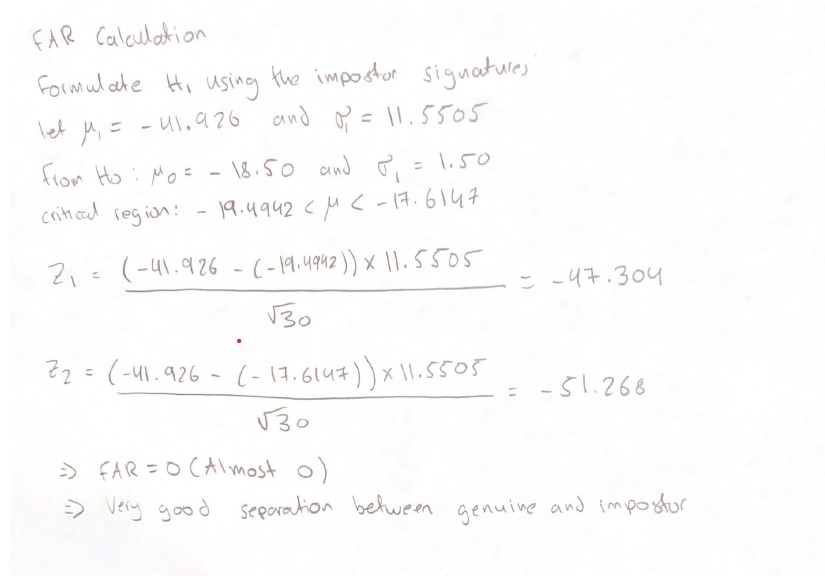 FAR Calculation
Formulate H₁ using the impostor signatures
let μ₁ = -41.926 and σ₁ = 11.5505
from Ho : μ₀ = - 18.50 and σ₁ = 1.50
critical region: - 19.4942 < μ < -17.6147
Z₁ = (-41.926 - (-19.4942)) × 11.5505 / √30 = -47.304
Z₂ = (-41.926 - (-17.6147)) × 11.5505 / √30 = -51.268
⇒ FAR = 0 (Almost 0)
⇒ Very good separation between genuine and impostor